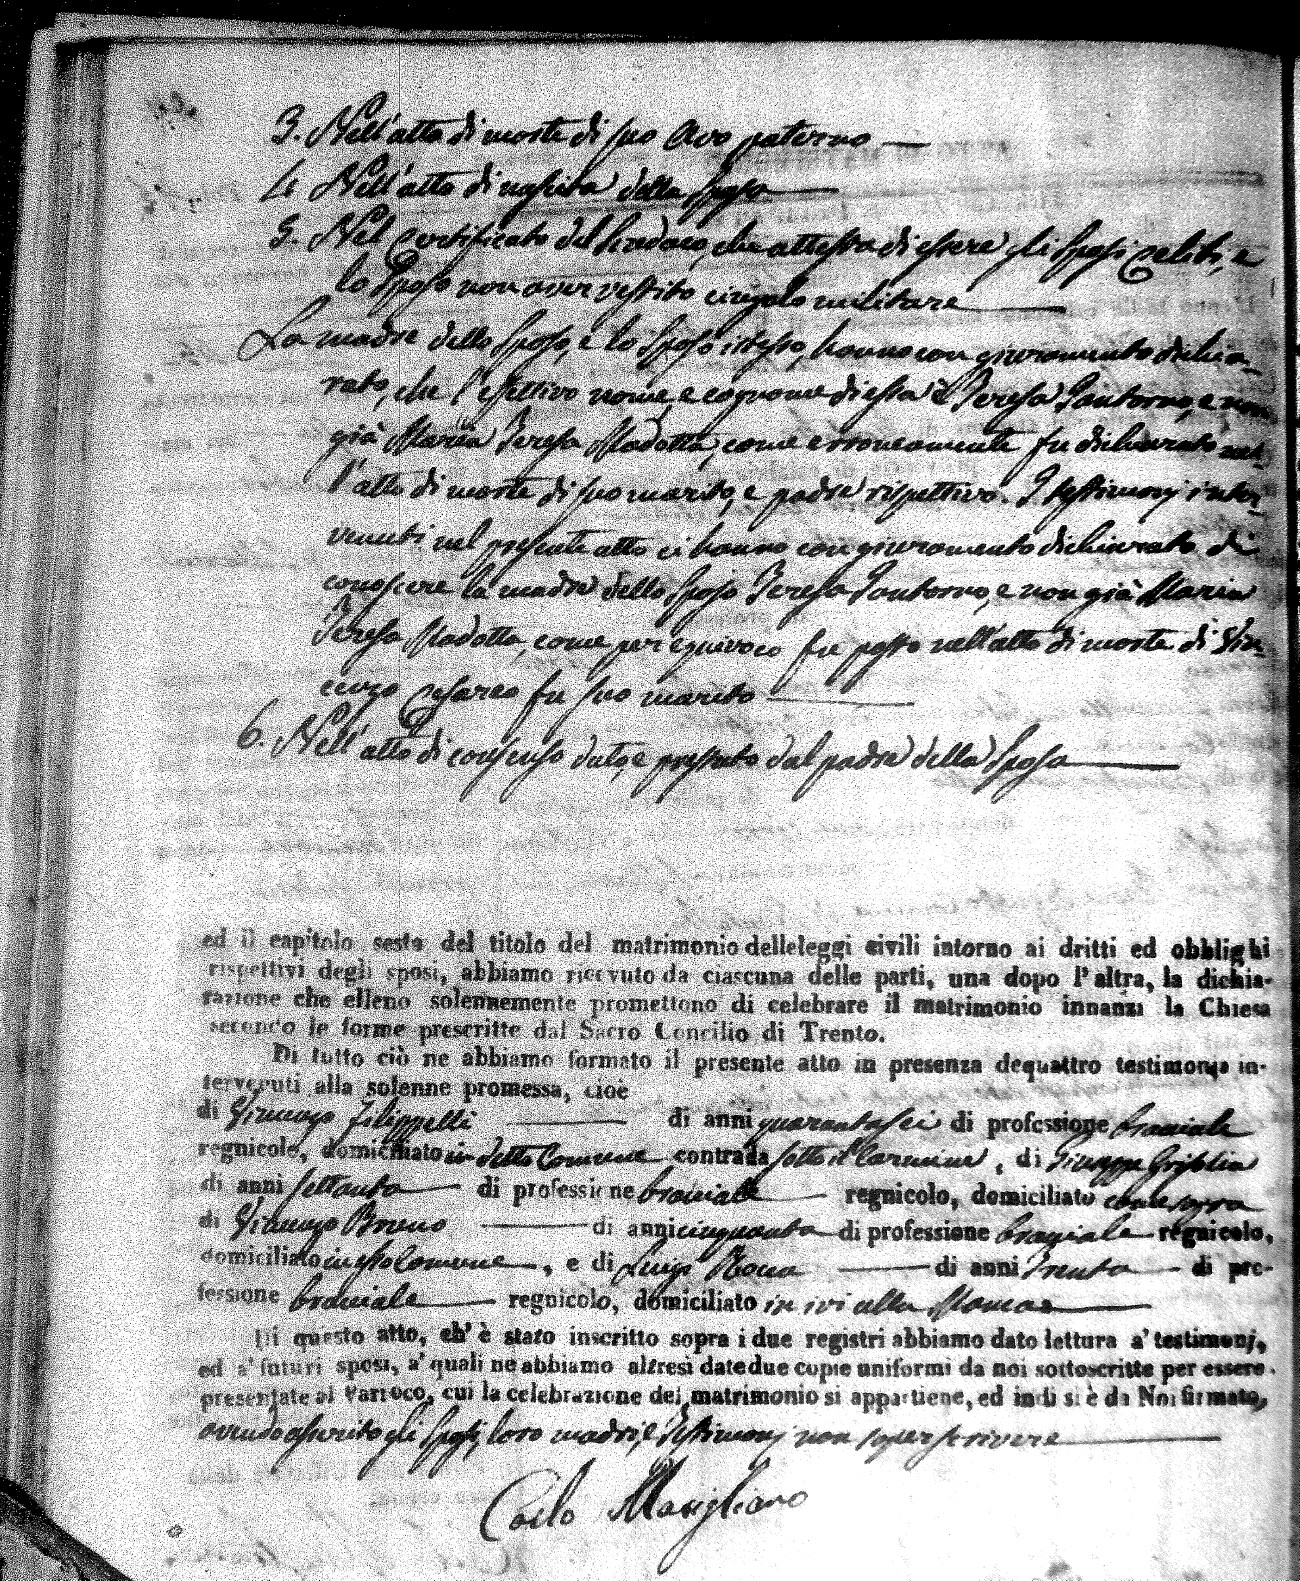 3. Nell'atto di morte di suo Avo paterno
4. Nell'atto di nascita della Sposa
5. Nel Certificato del Sindaco, che attesta di essere gli Sposi celibi, e
lo Sposo non aver vestito cingolo militare
La madre dello Sposo, e lo Sposo istesso, hanno con giuramento dichia-
rato, che l'effettivo nome, e cognome di essa è Teresa Santorno, e non
già Maria Teresa Madotta, come erroneamente fu dichiarato nel-
l'atto di morte di suo marito, e padre rispettivo. I testimonj inter-
venuti nel presente atto ci hanno con giuramento dichiarato di
conoscere la madre dello Sposo Teresa Santorno, e non già Maria
Teresa Madotta, come per equivoco fu posto nell'atto di morte di Vin-
cenzo Cesareo fu suo marito
6. Nell'atto di consenso dato, e prestato dal padre della Sposa
ed il capitolo sesto del titolo del matrimonio delleleggi civili intorno ai dritti ed obblighi
rispettivi degli sposi, abbiamo ricevuto da ciascuna delle parti, una dopo l'altra, la dichia-
razione che elleno solennemente promettono di celebrare il matrimonio innanzi la Chiesa
secondo le forme prescritte dal Sacro Concilio di Trento.
Di tutto ciò ne abbiamo formato il presente atto in presenza dequattro testimonja in-
tervenuti alla solenne promessa, cioè
di Vincenzo Filippelli di anni quarantasei di professione bracciale
regnicolo, domiciliato in detto Comune contrada sotto il Carmine, di Giuseppe Grisolia
di anni settanta di professione bracciale regnicolo, domiciliato come sopra
di Vincenzo Bruno di anni cinquanta di professione bracciale regnicolo,
domiciliato in esso Comune, e di Luigi Bona di anni trenta di pro-
fessione bracciale regnicolo, domiciliato in ivi alla
Di questo atto, ch'è stato inscritto sopra i due registri abbiamo dato lettura a' testimonj,
ed a' futuri sposi, a' quali ne abbiamo altresì date due copie uniformi da noi sottoscritte per essere
presentate al Parroco, cui la celebrazione del matrimonio si appartiene, ed indi si è da Noi firmato,
avendo asserito gli Sposi, loro madri, e Testimonj non saper scrivere
Carlo Marigliano